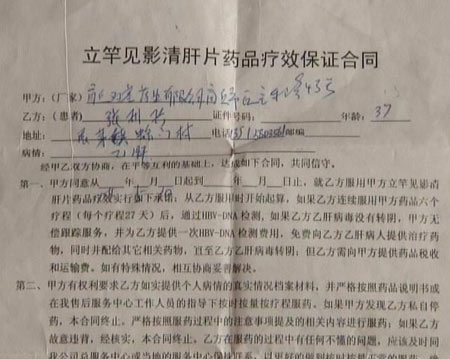 立竿见影清肝片药品疗效保证合同
甲方：（厂家）
乙方：（患者） 证件号码： 年龄：37
地址： 电话 邮编
病情： 乙肝
经甲乙双方协商，在平等互利的基础上，达成如下合同，共同信守。
第一、甲方同意从 年 月 日起到 年 月 日止，就乙方服用甲方立竿见影清
肝片药品疗效实行如下承诺：从乙方服用时开始起算，如果乙方连续服用甲方药品六个
疗程（每个疗程27天）后，通过HBV-DNA检测，如果乙方乙肝病毒没有转阴，甲方无
偿跟踪服务，并为乙方提供一次HBV-DNA检测费用，免费向乙方乙肝病人提供治疗药
物，同时并配给其它相关药物，直至乙方乙肝病毒转阴，但乙方需向甲方提供药品税收
和运输费。如有特殊情况，相互协商妥善解决。
第二、甲方有权利要求乙方如实提供个人病情的真实情况档案材料，并严格按照药品说明书或
在我售后服务中心工作人员的指导下按时按量按疗程服药。如果甲方发现乙方私自停
药，本合同终止。严格按照服药过程中的注意事项提及的相关内容进行服药；如果乙方
故意违背，经核实，本合同终止。乙方在服药的过程中有任何不懂的问题，应该及时同
我公司总服务中心或当地的服务中心保持联系，以更好的做到按时按量正确的服药，确